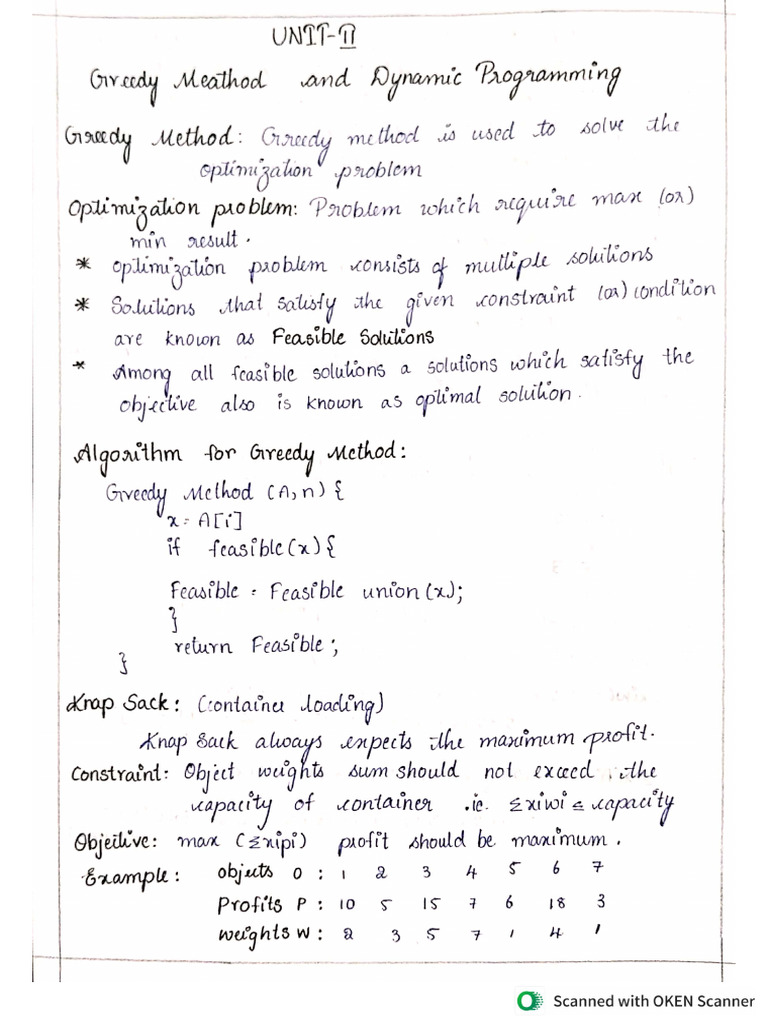 UNIT-II
Greedy Meathod and Dynamic Programming
Greedy Method: Greedy method is used to solve the
optimization problem
Optimization problem: Problem which require max (or)
min result.
* optimization problem consists of multiple solutions
* Solutions that satisfy the given constraint (or) condition
are known as Feasible Solutions
* Among all feasible solutions a solutions which satisfy the
objective also is known as optimal solution.
Algorithm for Greedy Method:
Greedy Method (A,n) {
x = A[i]
if feasible(x) {
Feasible = Feasible union(x);
}
return Feasible;
}
Knap Sack: (container loading)
Knap Sack always expects the maximum profit.
Constraint: Object weights sum should not exceed the
capacity of container .ie. Σxiwi ≤ capacity
Objective: max (Σxipi) profit should be maximum.
Example: objects O : 1 2 3 4 5 6 7
Profits P : 10 5 15 7 6 18 3
weights W : 2 3 5 7 1 4 1
Scanned with OKEN Scanner